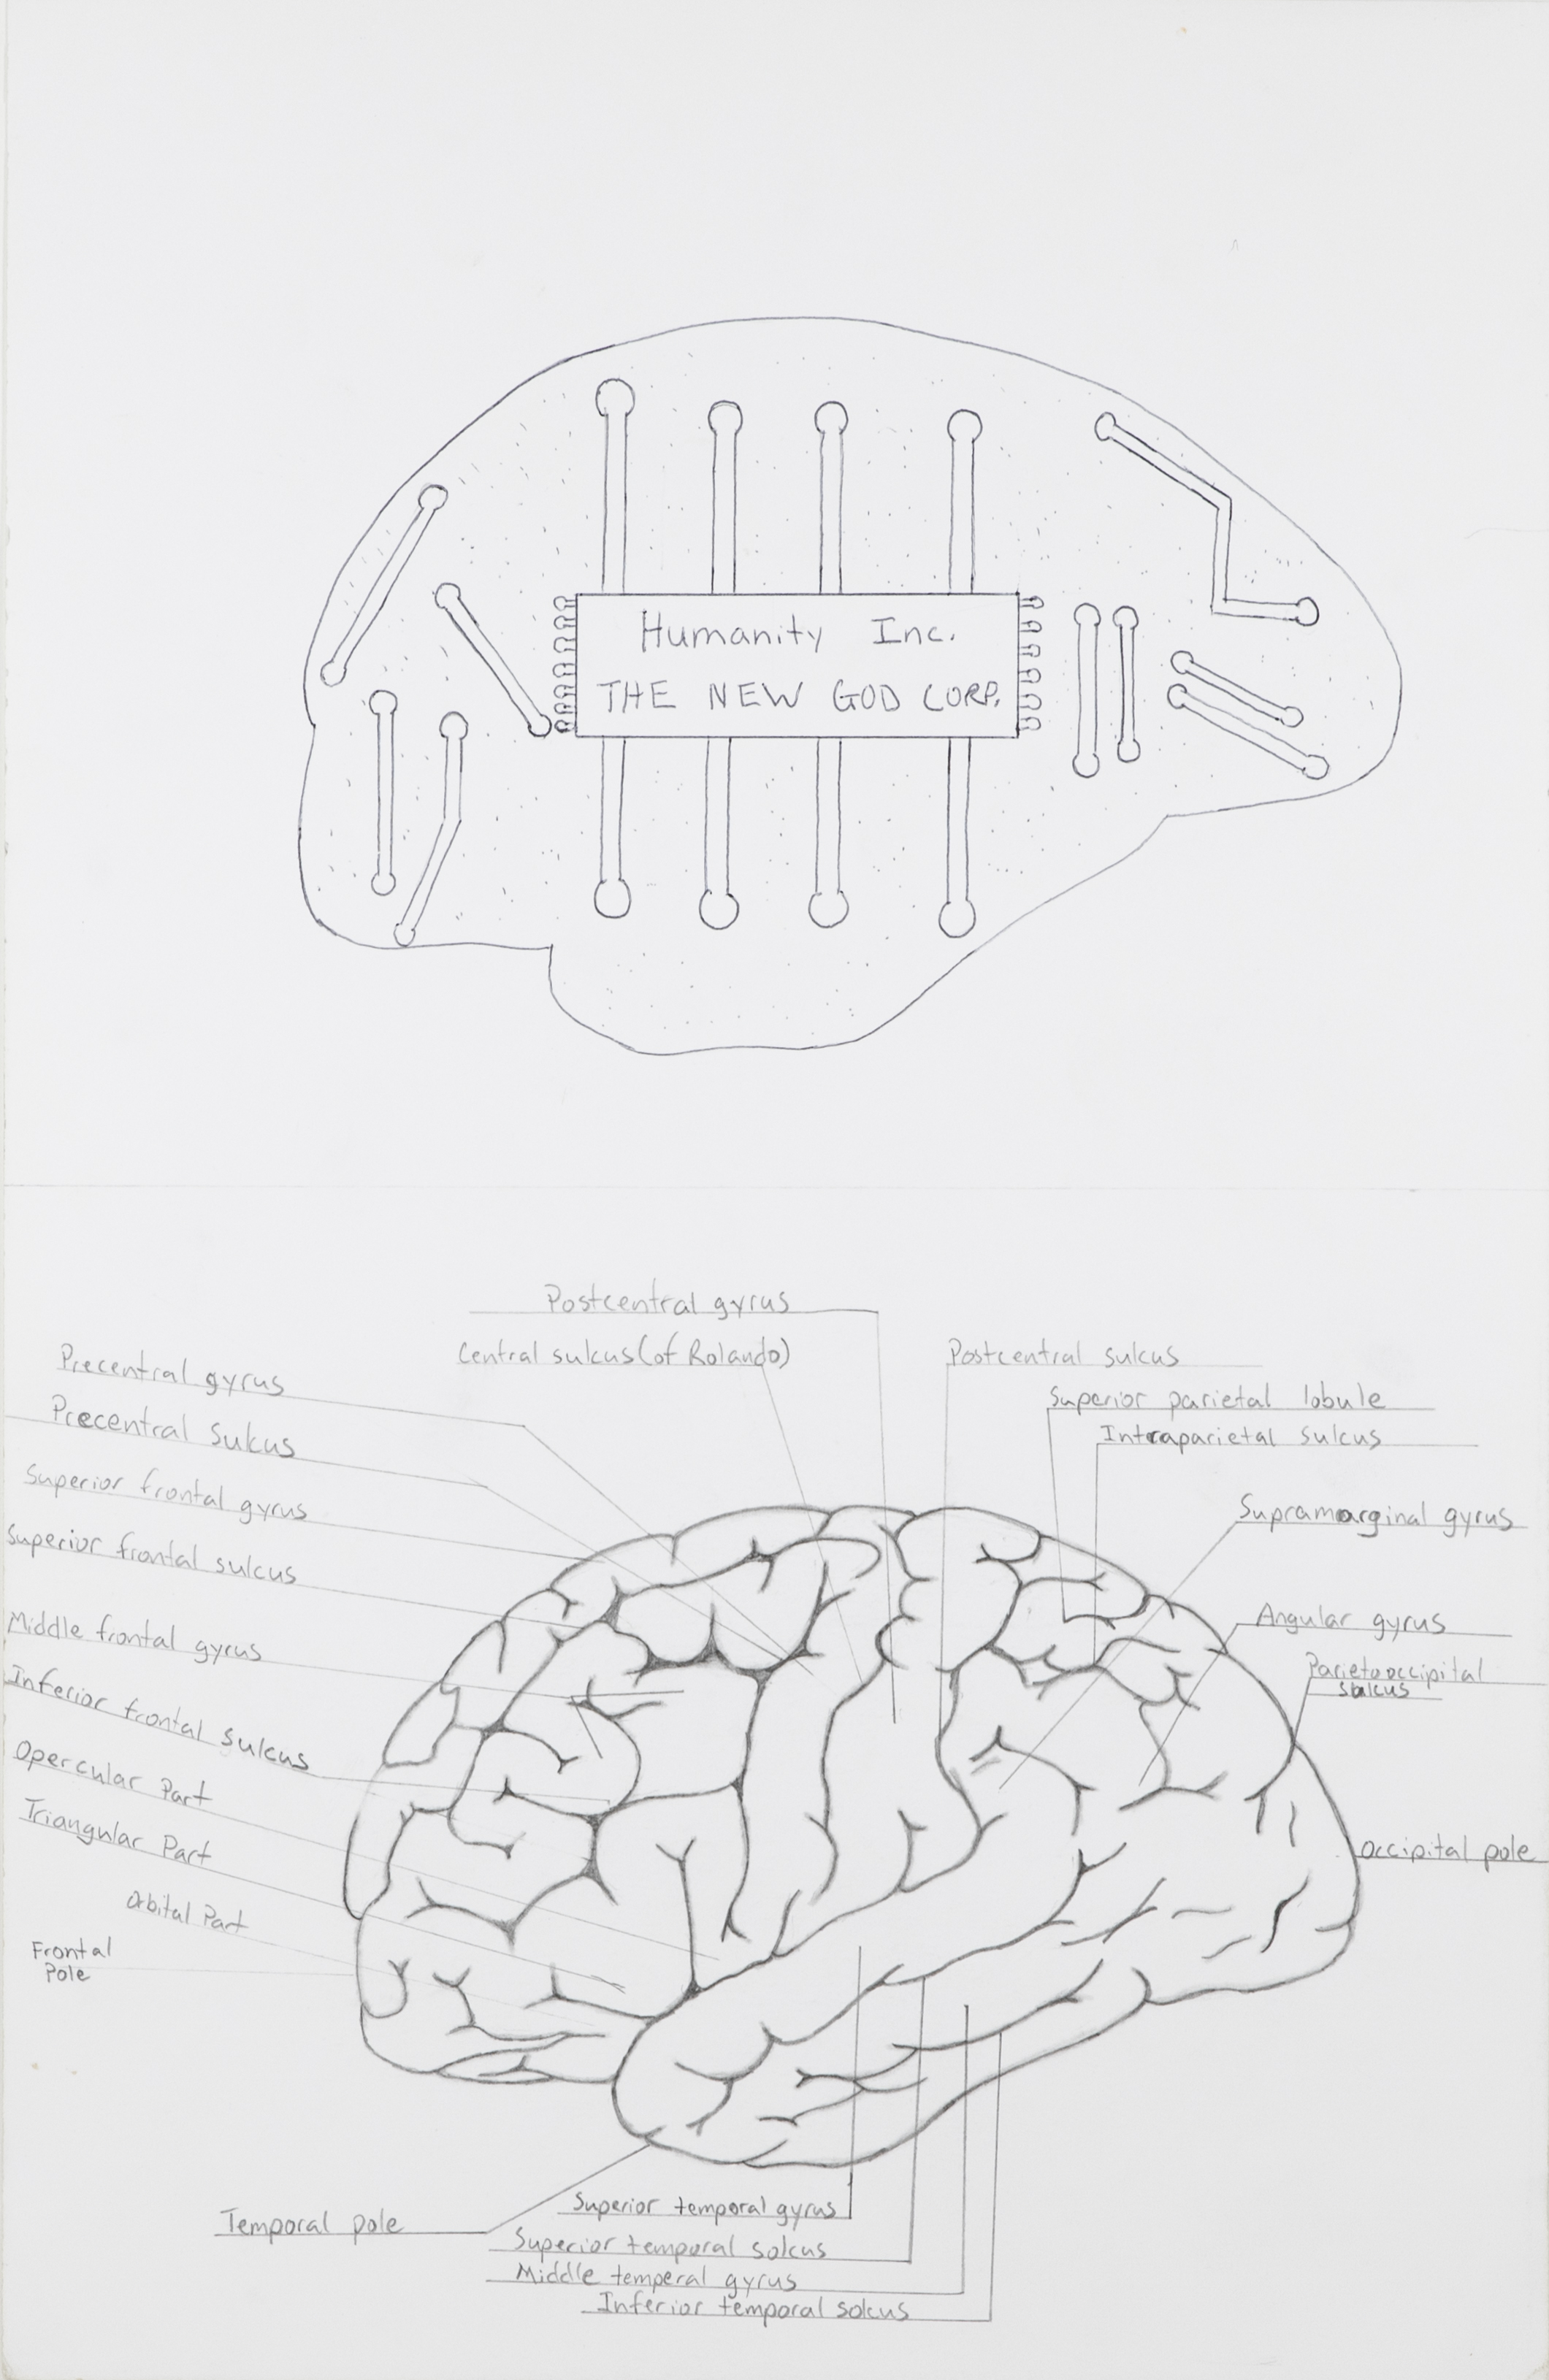 Humanity Inc.
THE NEW GOD CORP.
Postcentral gyrus
Central sulcus (of Rolando)
Precentral gyrus
Precentral Sulcus
Superior frontal gyrus
Superior frontal sulcus
Middle frontal gyrus
Inferior frontal sulcus
Opercular Part
Triangular Part
Orbital Part
Frontal
Pole
Postcentral sulcus
Superior parietal lobule
Intraparietal sulcus
Supramarginal gyrus
Angular gyrus
Parietooccipital
sulcus
Occipital pole
Temporal pole
Superior temporal gyrus
Superior temporal solcus
Middle temperal gyrus
Inferior temporal solcus